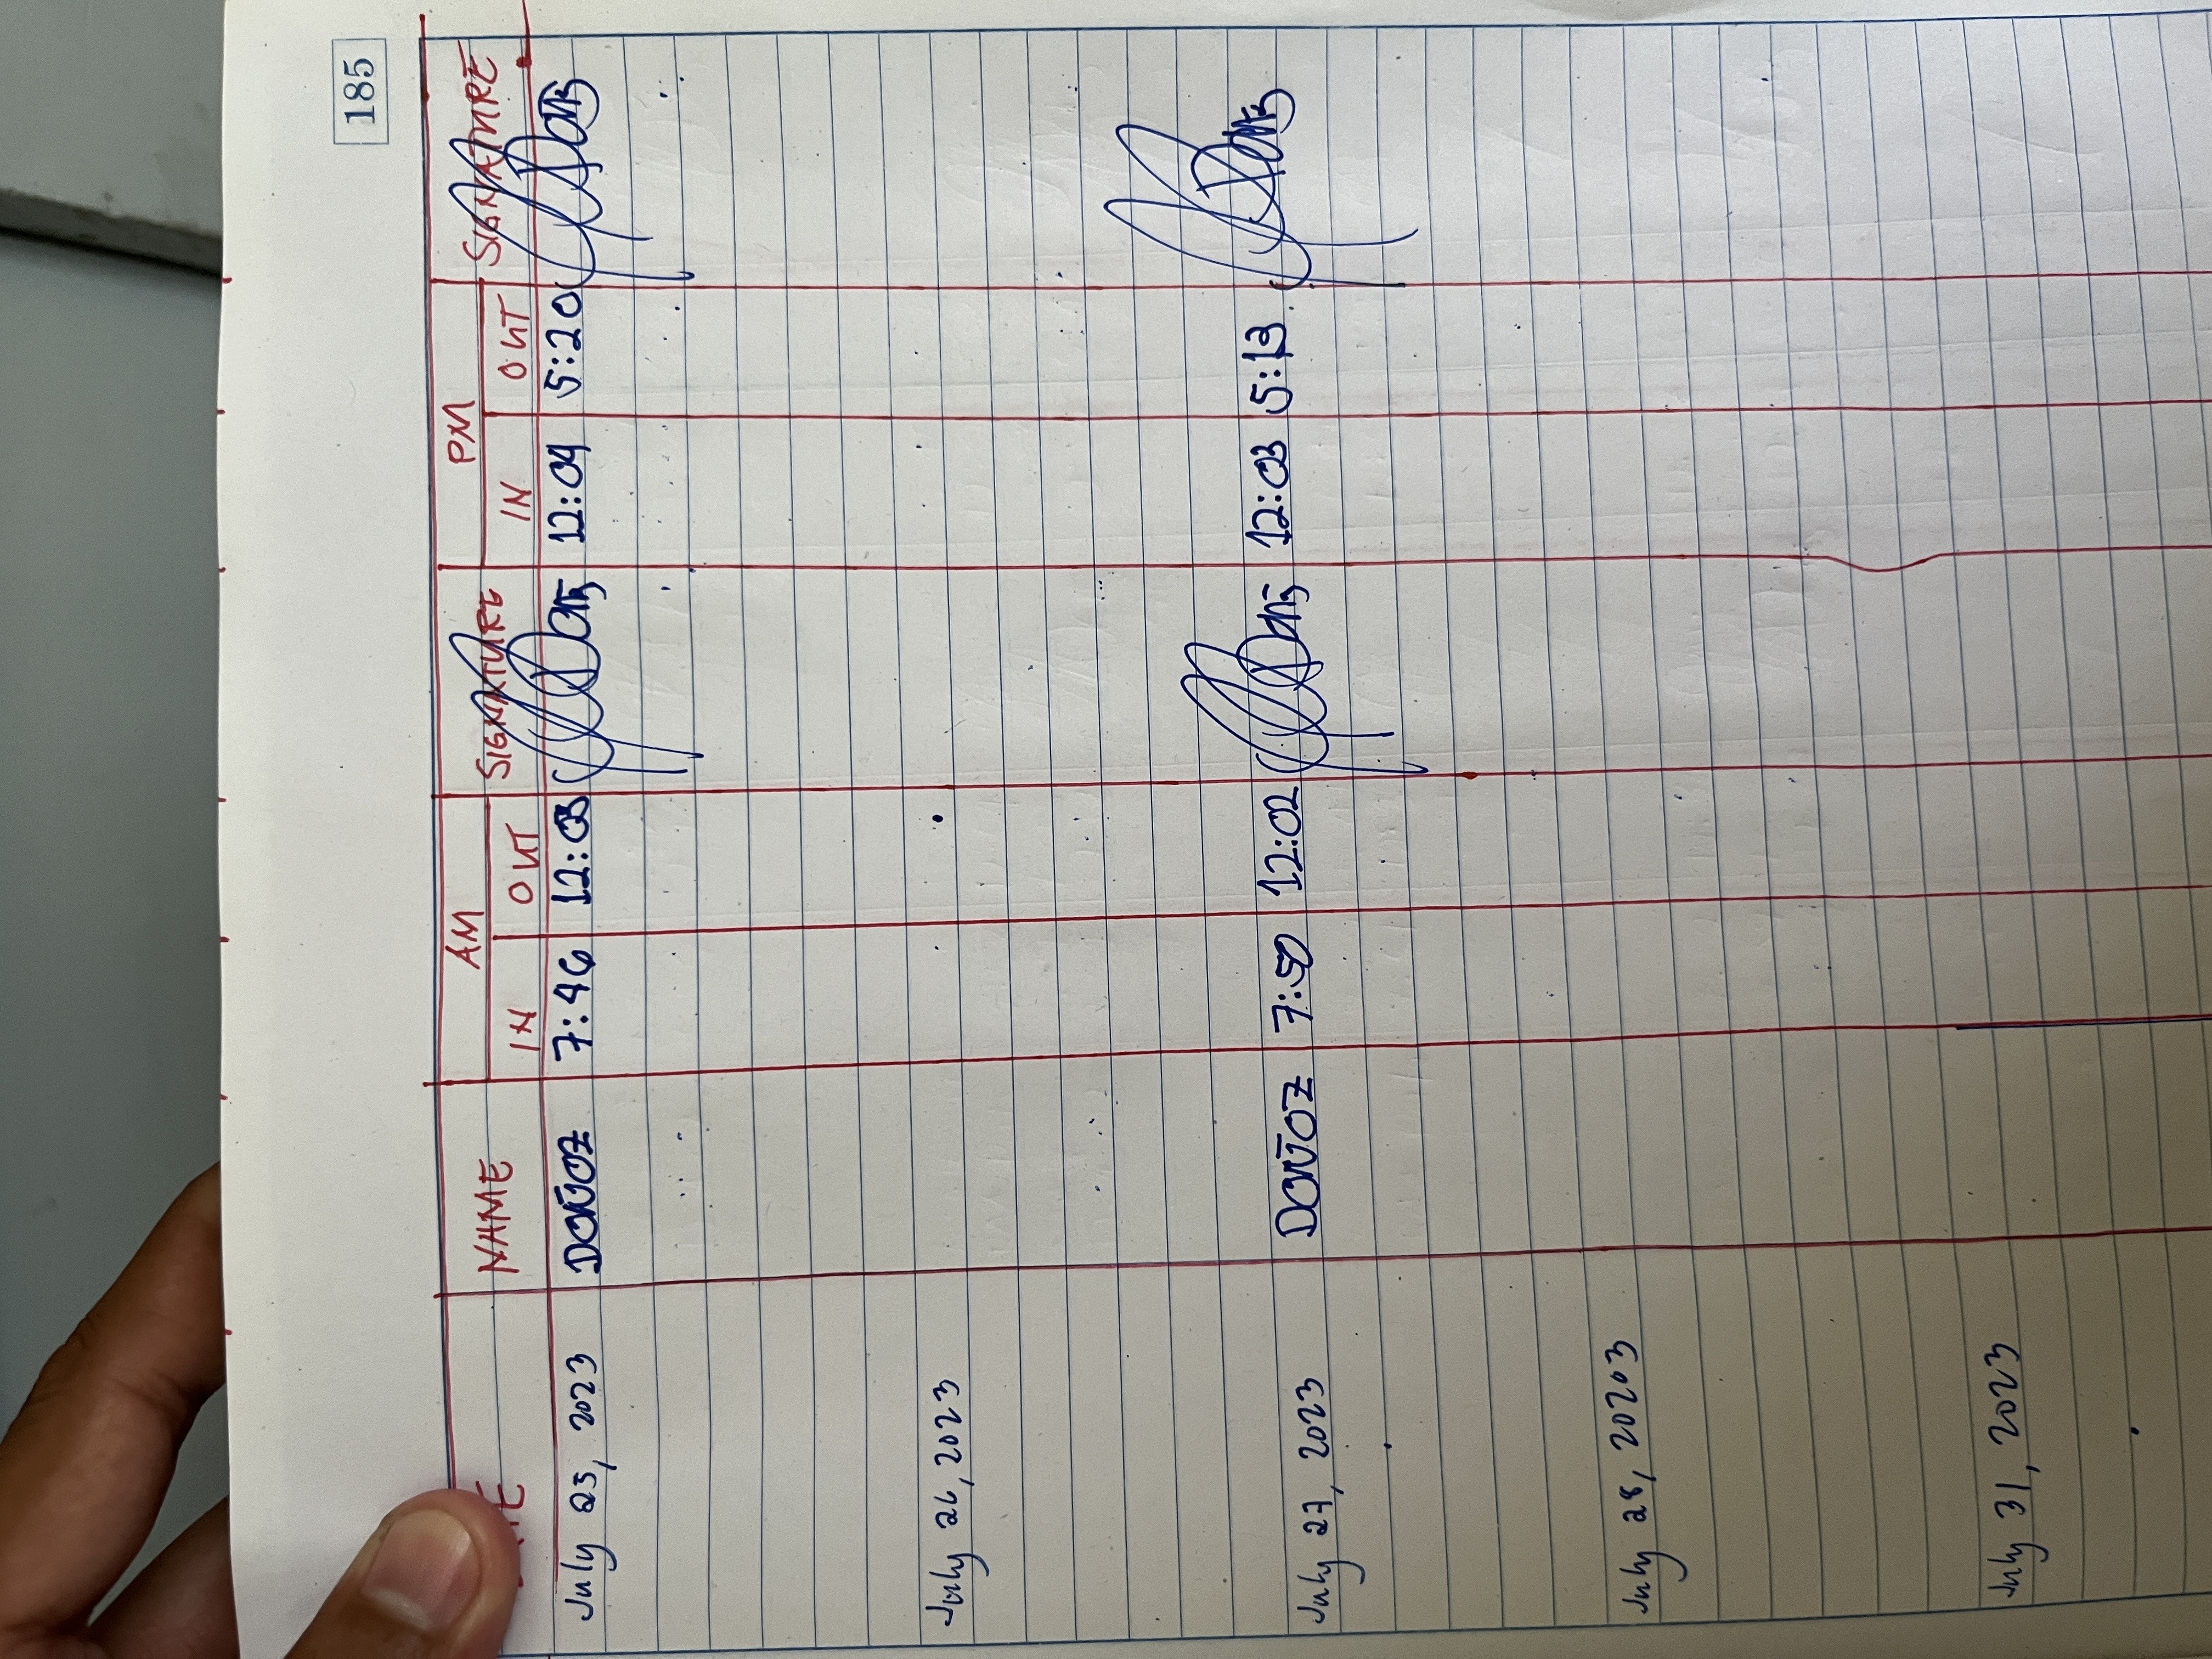 185
AM SIGNATURE PM SIGNATURE
NAME IN OUT IN OUT
July 25, 2023 DOÑOZ 7:46 12:03 12:04 5:20
July 26, 2023
July 27, 2023 DOÑOZ 7:50 12:02 12:03 5:13
July 28, 20203
July 31, 2023